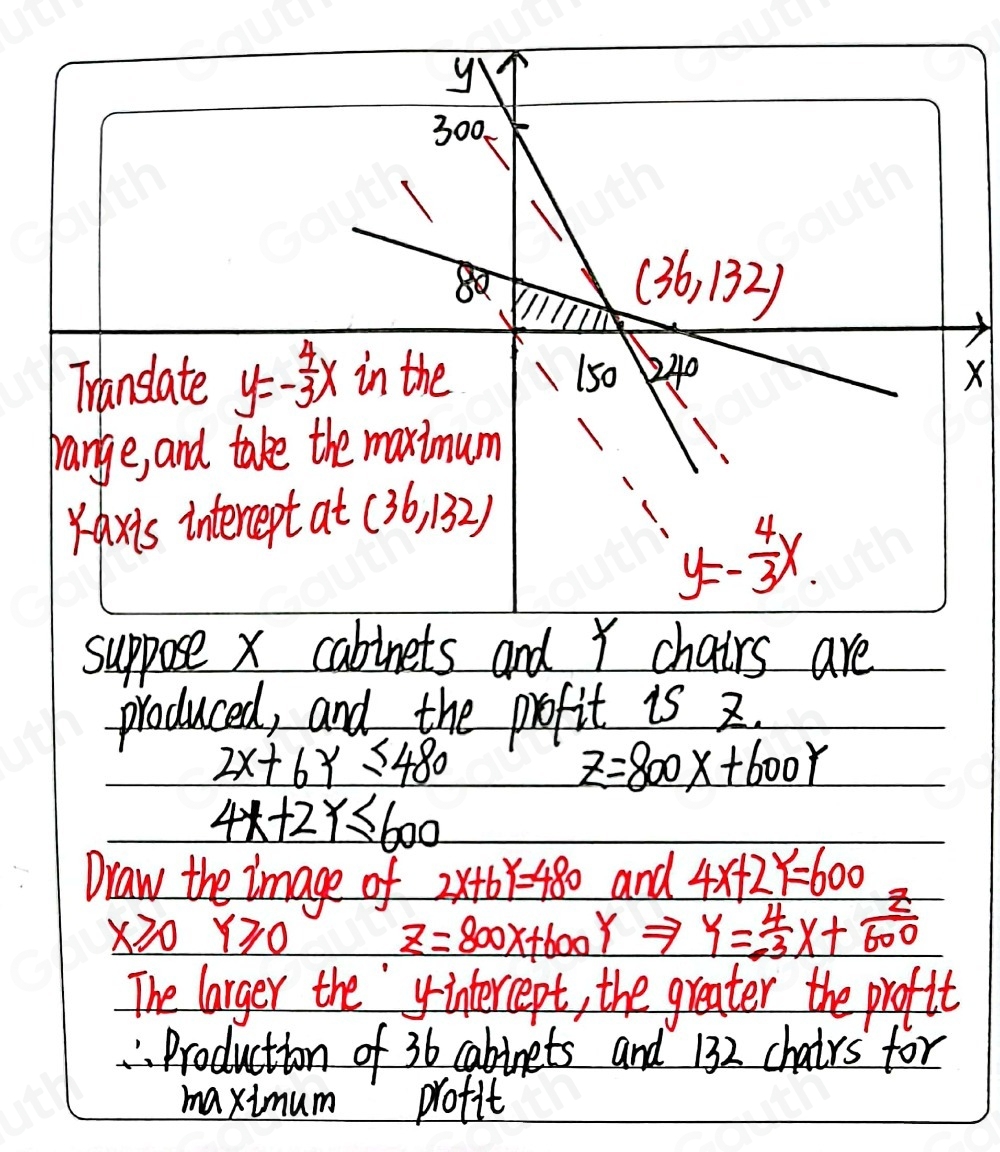 y
300
80
(36,132)
150 240
x
Translate y=-4/3x in the
range, and take the maximum
Y-axis intercept at (36,132)
y=-4/3x.
suppose x cabinets and Y chairs are
produced, and the profit is z.
2x+6Y≤480 z=800x+600Y
4x+2Y≤600
Draw the image of 2x+6Y=480 and 4x+2Y=600
x≥0 Y≥0 z=800x+600Y ⇒ Y=-4/3x+z/600
The larger the y-intercept, the greater the profit
∴ Production of 36 cabinets and 132 chairs for
maximum profit
Gauth